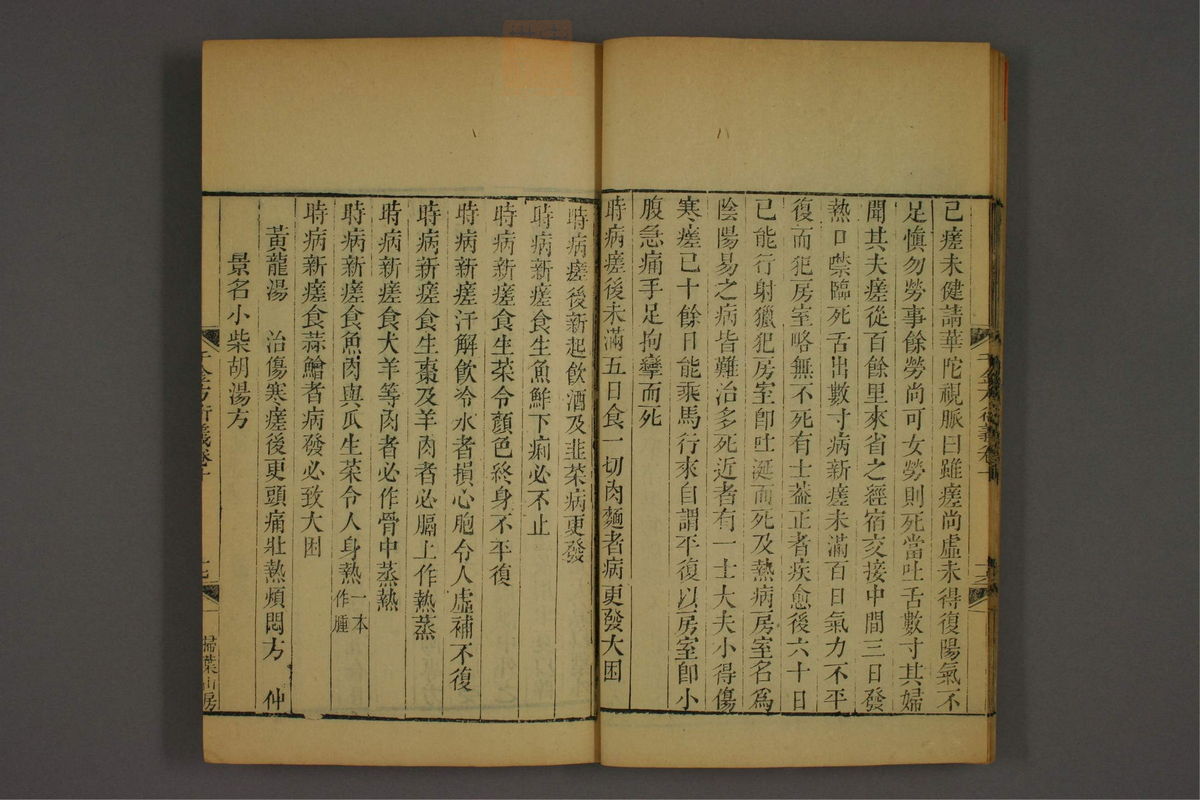 已瘥未健請華陀視脈曰雖瘥尚虛未得復陽氣不
足慎勿勞事餘勞尚可女勞則死當吐舌數寸其婦
聞其夫瘥從百餘里來省之經宿交接中間三日發
熱口噤臨死舌出數寸病新瘥未滿百日氣力不平
復而犯房室略無不死有士葢正者疾愈後六十日
已能行射獵犯房室卽吐涎而死及熱病房室名爲
陰陽易之病皆難治多死近者有一士大夫小得傷
寒瘥已十餘日能乘馬行來自謂平復以房室卽小
腹急痛手足拘攣而死
時病瘥後未滿五日食一切肉麵者病更發大困
時病瘥後新起飲酒及韭菜病更發
時病新瘥食生魚鮓下痢必不止
時病新瘥食生菜令顏色終身不平復
時病新瘥汗解飲冷水者損心胞令人虛補不復
時病新瘥食生棗及羊肉者必膈上作熱蒸
時病新瘥食犬羊等肉者必作骨中蒸熱
時病新瘥食魚肉與瓜生菜令人身熱一本作腫
時病新瘥食蒜鱠者病發必致大困
黃龍湯　治傷寒瘥後更頭痛壯熱煩悶方　仲
景名小柴胡湯方
千金方衍義卷十
十七
掃葉山房